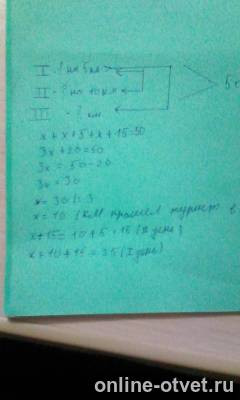 I - ? на 5 км
II - ? на 10 км
III - ? км
x + x + 5 + x + 15 = 50
3x + 20 = 50
3x = 50 - 20
3x = 30
x = 30 : 3
x = 10 (км прошел турист в
x + 15 = 10 + 5 = 15 (II день)
x + 10 + 15 = 25 (I день)
online-otvet.ru